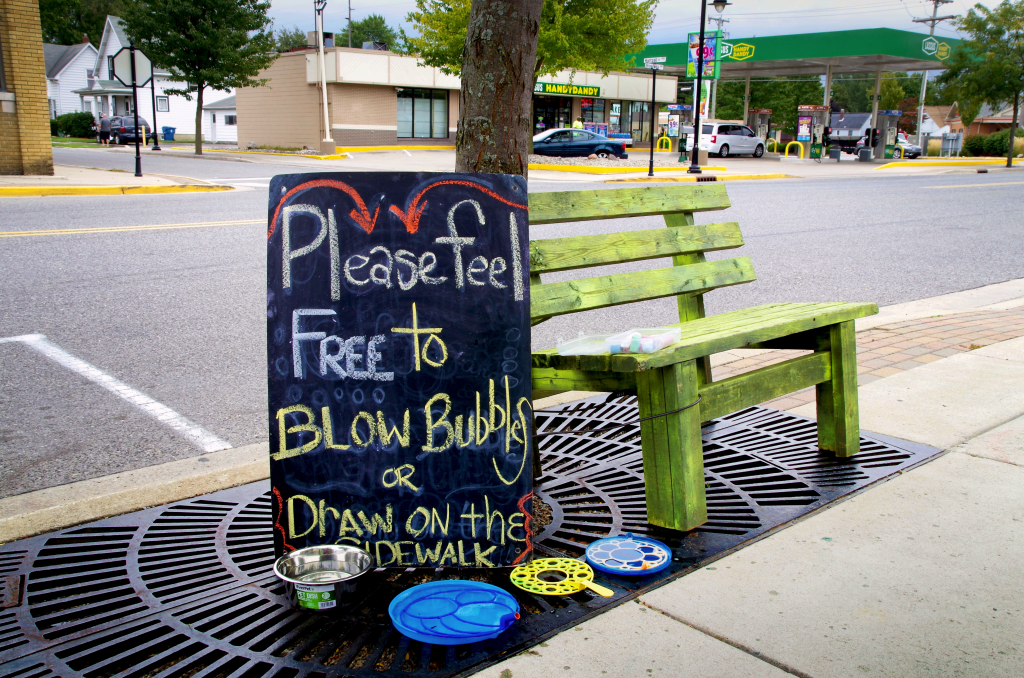 HANDY DANDY
HANDY DANDY
Please feel
FREE to
BLOW BubblES
OR
DrAW ON thE
SIDEWALK
PET DISH